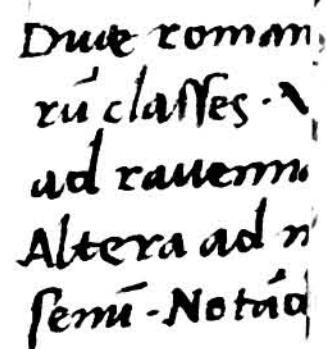 Duæ roman
rū claſſes · 
ad rauenn
Altera ad
ſenū · Notād